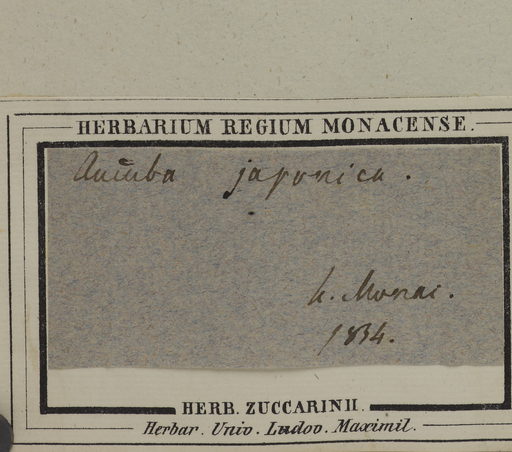 HERBARIUM REGIUM MONACENSE.
Aucuba japonica.
h. Monac.
1834.
HERB. ZUCCARINII.
Herbar. Univ. Ludov. Maximil.